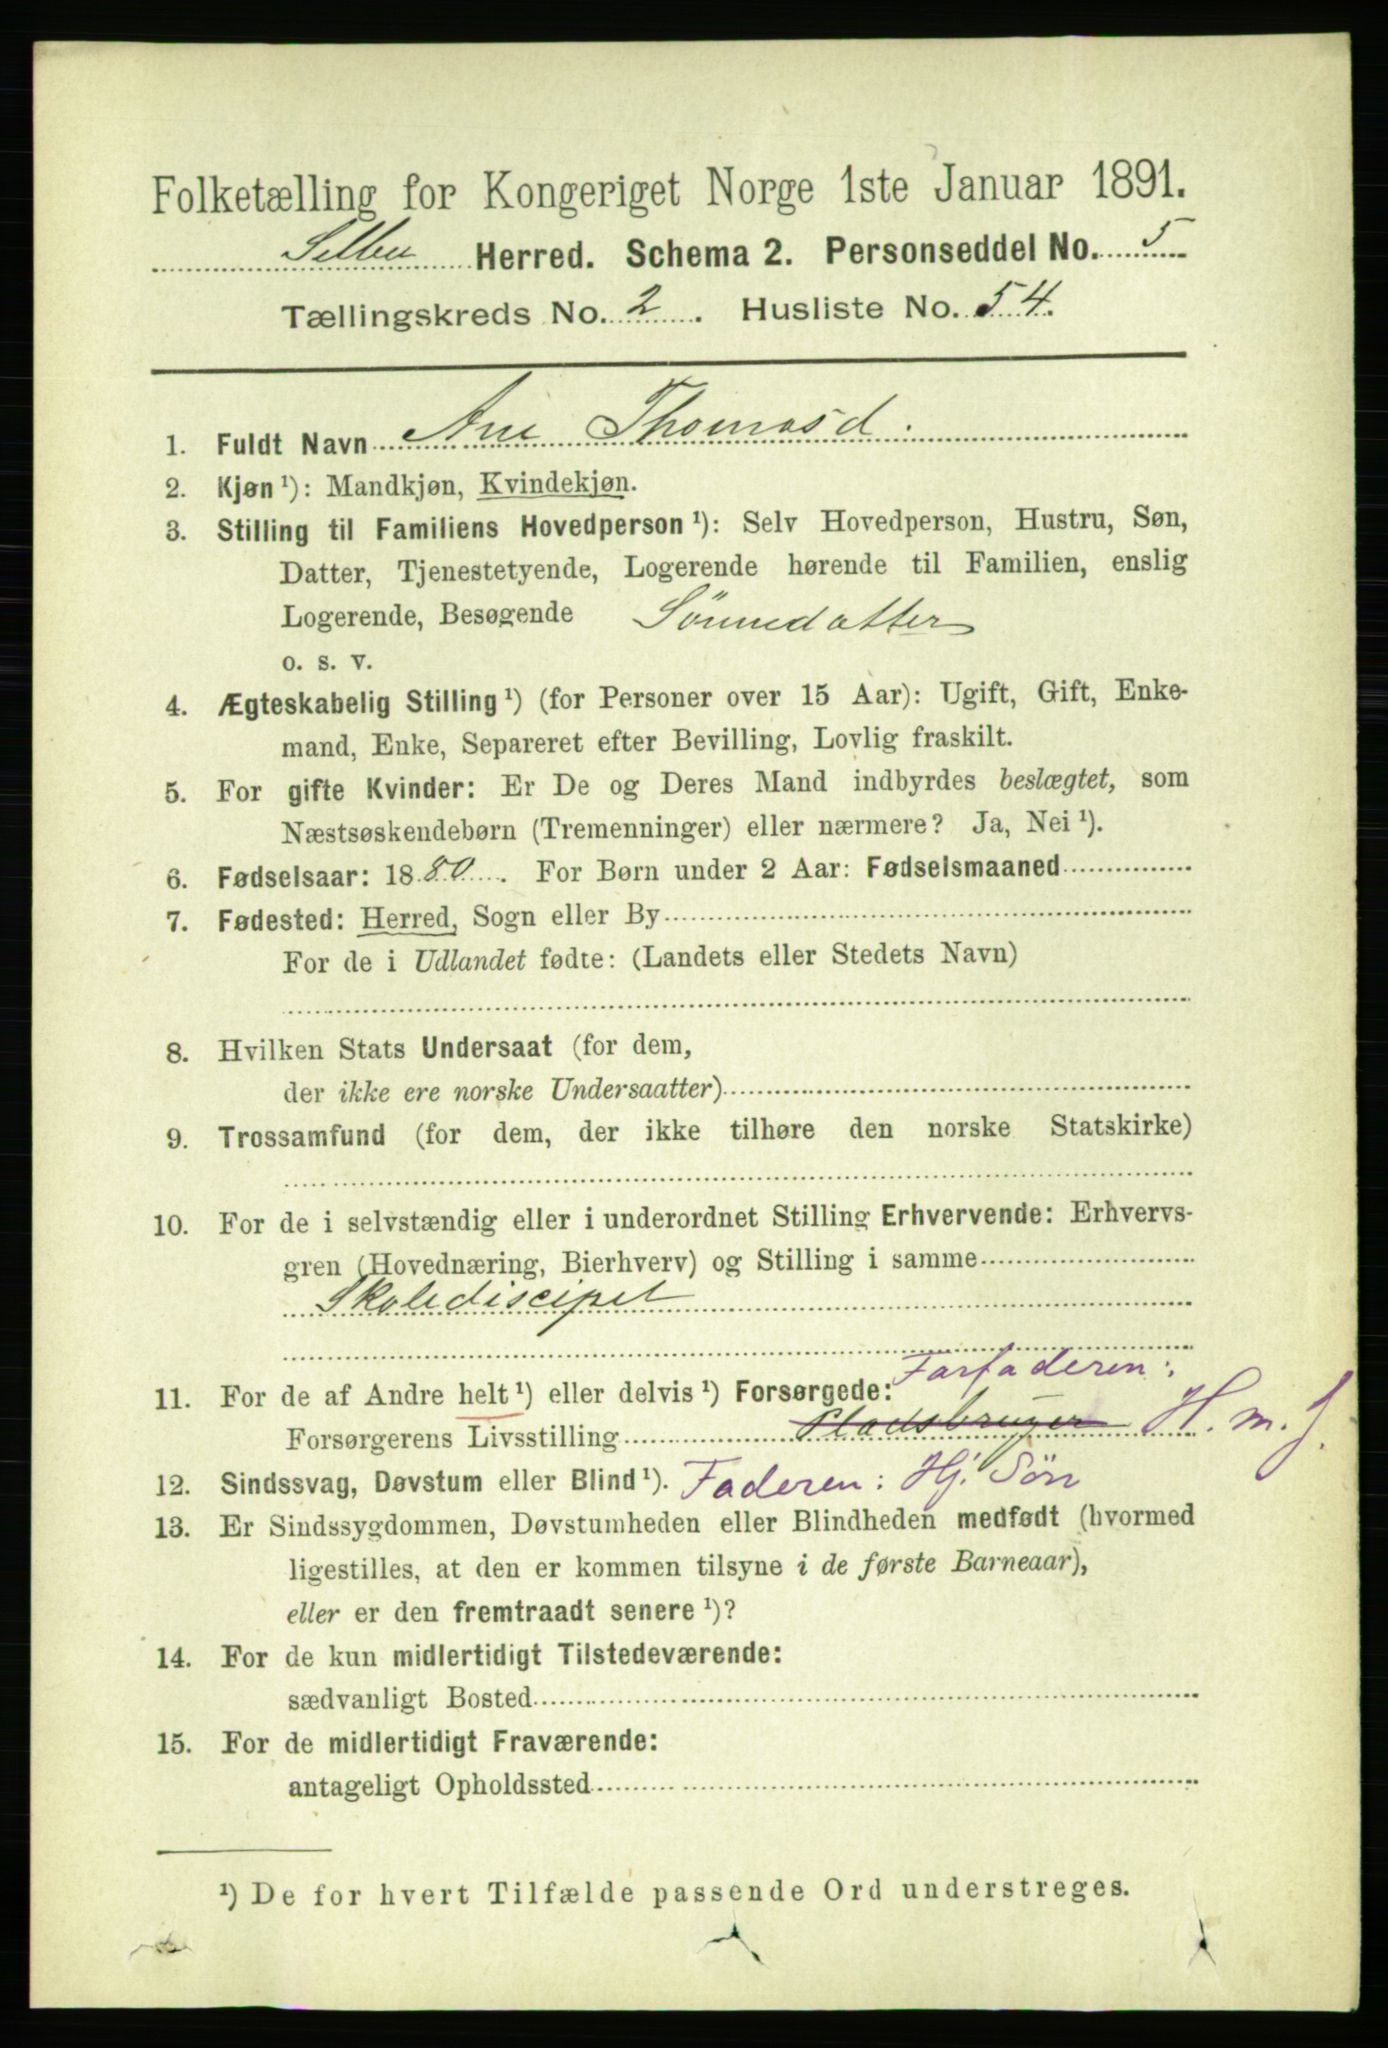 Folketælling for Kongeriget Norge 1ste Januar 1891.
Selbu Herred. Schema 2. Personseddel No. 5
Tællingskreds No. 2. Husliste No. 54.
1. Fuldt Navn Ane Thomasd.
2. Kjøn ¹): Mandkjøn, Kvindekjøn.
3. Stilling til Familiens Hovedperson ¹): Selv Hovedperson, Hustru, Søn,
Datter, Tjenestetyende, Logerende hørende til Familien, enslig
Logerende, Besøgende Sønnedatter
o. s. v.
4. Ægteskabelig Stilling ¹) (for Personer over 15 Aar): Ugift, Gift, Enke-
mand, Enke, Separeret efter Bevilling, Lovlig fraskilt.
5. For gifte Kvinder: Er De og Deres Mand indbyrdes beslægtet, som
Næstsøskendebørn (Tremenninger) eller nærmere? Ja, Nei ¹).
6. Fødselsaar: 1880. For Børn under 2 Aar: Fødselsmaaned
7. Fødested: Herred, Sogn eller By
For de i Udlandet fødte: (Landets eller Stedets Navn)
8. Hvilken Stats Undersaat (for dem,
der ikke ere norske Undersaatter)
9. Trossamfund (for dem, der ikke tilhøre den norske Statskirke)
10. For de i selvstændig eller i underordnet Stilling Erhvervende: Erhvervs-
gren (Hovednæring, Bierhverv) og Stilling i samme
Skolediscipel
Farfaderen:
11. For de af Andre helt ¹) eller delvis ¹) Forsørgede:
Forsørgerens Livsstilling Pladsbruger H. m. J.
12. Sindssvag, Døvstum eller Blind ¹). Faderen: Hj. Søn
13. Er Sindssygdommen, Døvstumheden eller Blindheden medfødt (hvormed
ligestilles, at den er kommen tilsyne i de første Barneaar),
eller er den fremtraadt senere ¹)?
14. For de kun midlertidigt Tilstedeværende:
sædvanligt Bosted
15. For de midlertidigt Fraværende:
antageligt Opholdssted
¹) De for hvert Tilfælde passende Ord understreges.